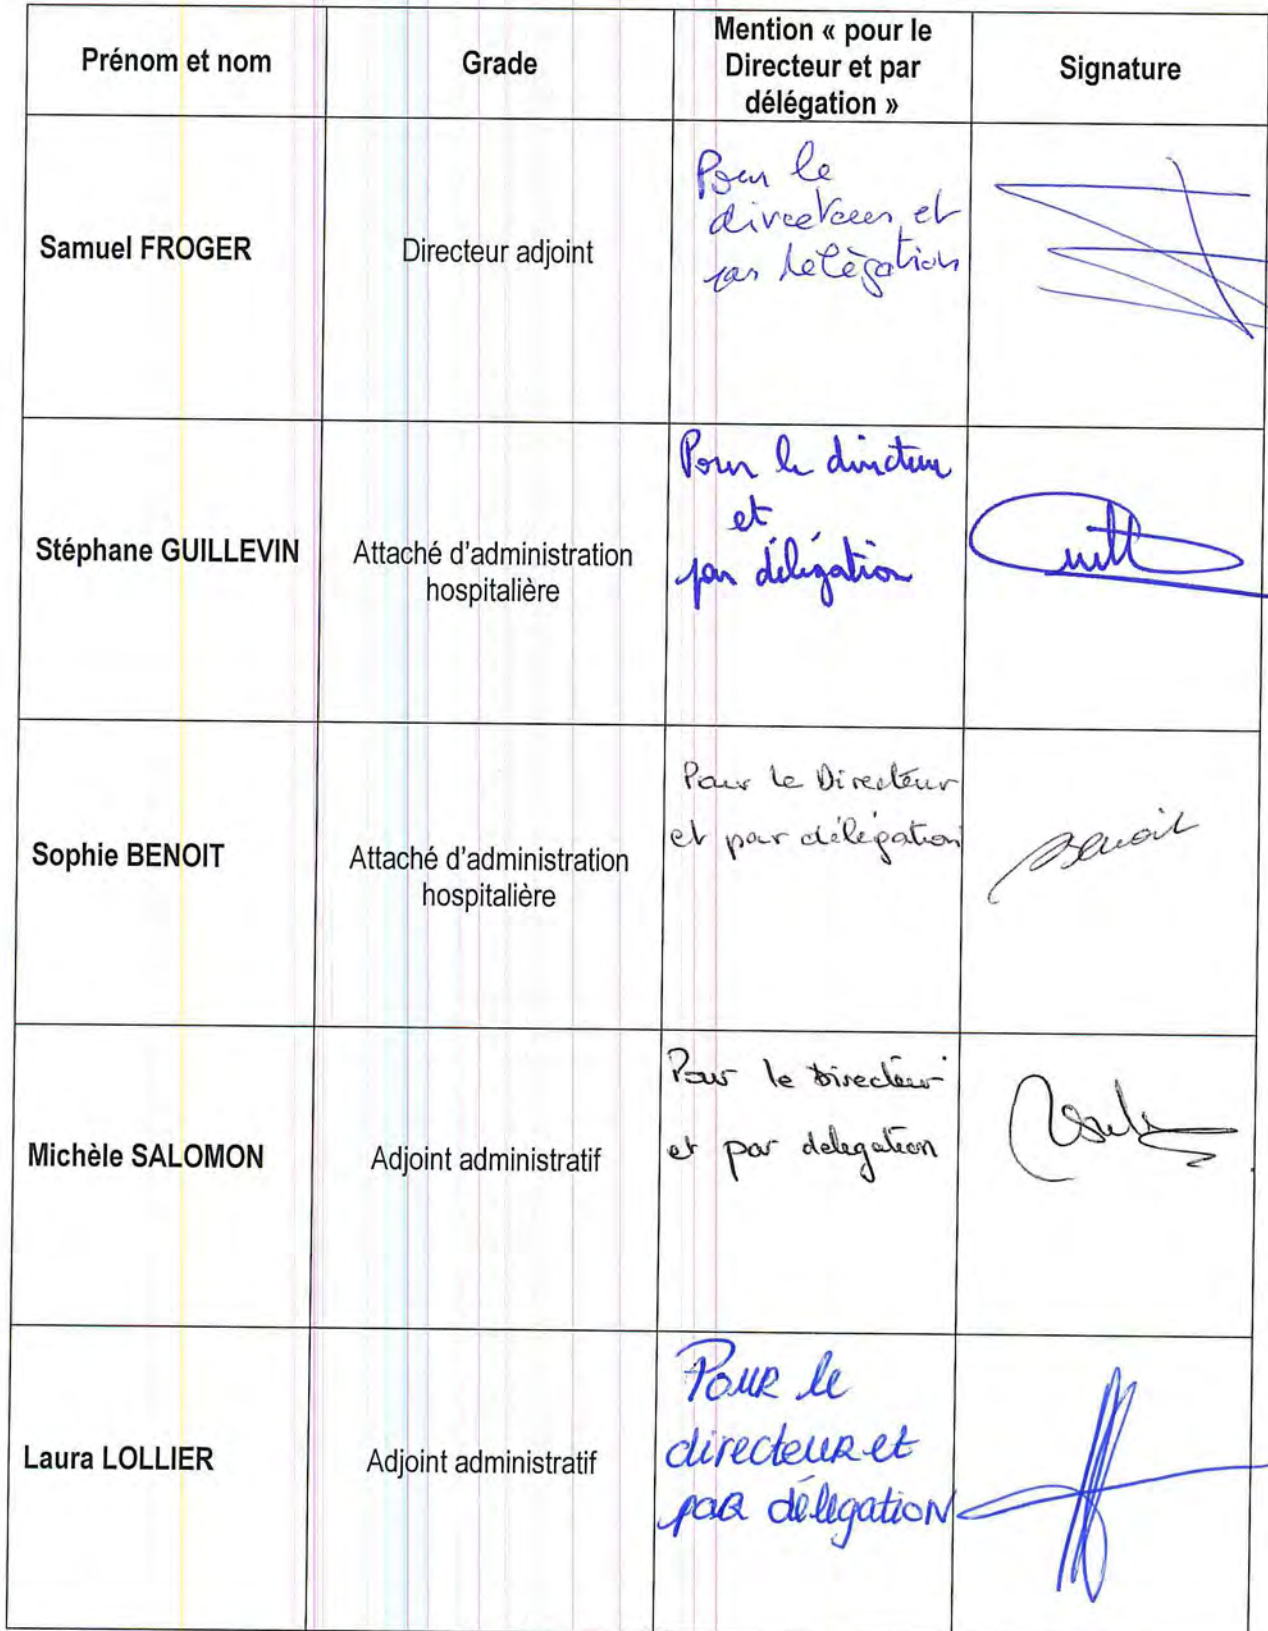 Prénom et nom
Grade
Mention « pour le
Directeur et par
délégation »
Signature
Samuel FROGER
Directeur adjoint
Pour le
directeur et
par délégation
Stéphane GUILLEVIN
Attaché d'administration
hospitalière
Pour le directeur
et
par délégation
Guill
Sophie BENOIT
Attaché d'administration
hospitalière
Pour le Directeur
et par délégation
Benoit
Michèle SALOMON
Adjoint administratif
Pour le Directeur
et par delegation
Laura LOLLIER
Adjoint administratif
Pour le
directeur et
par délégation